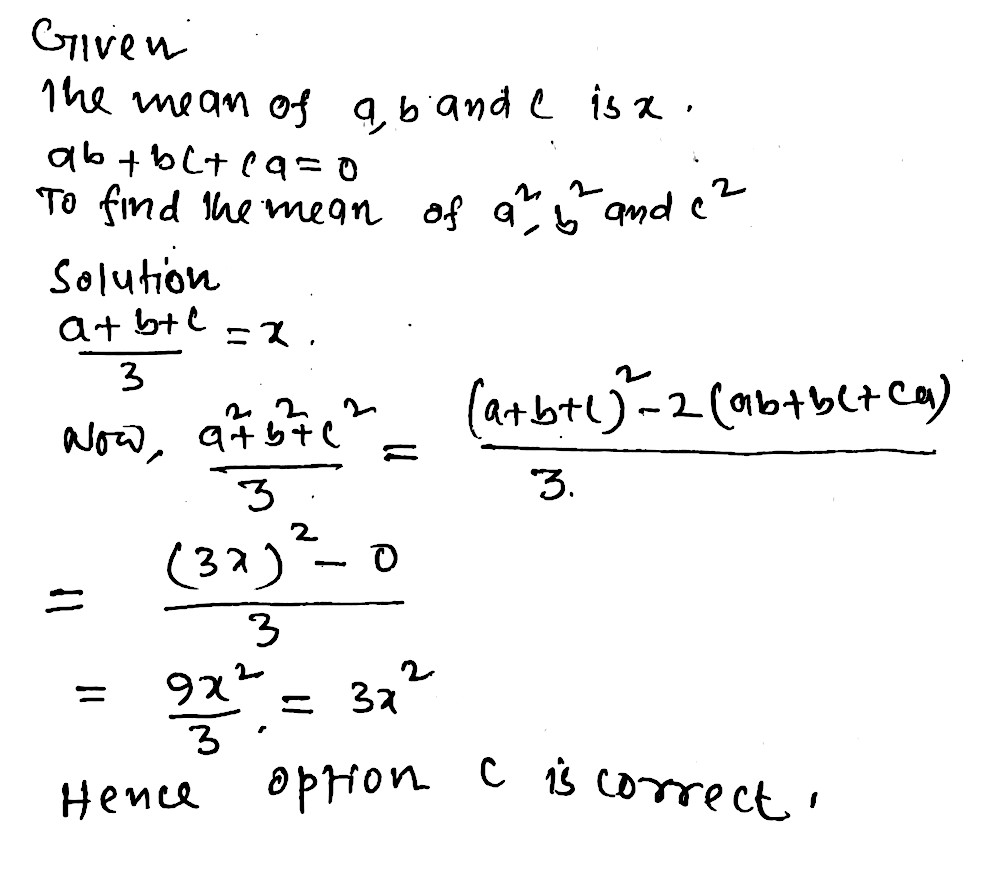 Given
The mean of a, b and c is x.
ab + bc + ca = 0
To find the mean of a², b² and c²
Solution
(a + b + c)/3 = x.
Now, (a² + b² + c²)/3 = ((a+b+c)² - 2(ab+bc+ca))/3.
= ((3x)² - 0)/3
= 9x²/3 . = 3x²
Hence option c is correct.